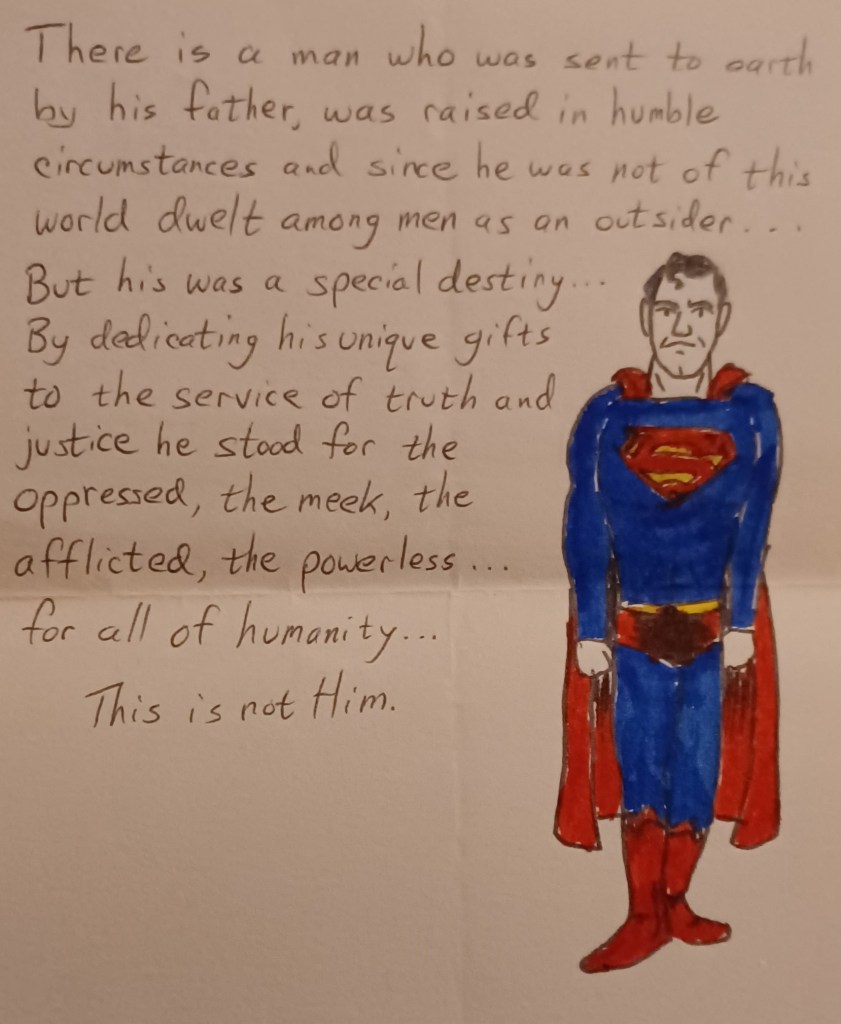 There is a man who was sent to earth
by his father, was raised in humble
circumstances and since he was not of this
world dwelt among men as an outsider...
But his was a special destiny...
By dedicating his unique gifts
to the service of truth and
justice he stood for the
oppressed, the meek, the
afflicted, the powerless...
for all of humanity...
This is not Him.